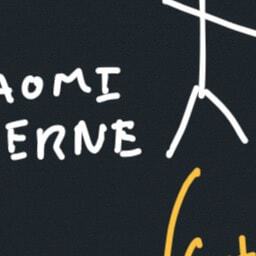 AOMI
ERNE